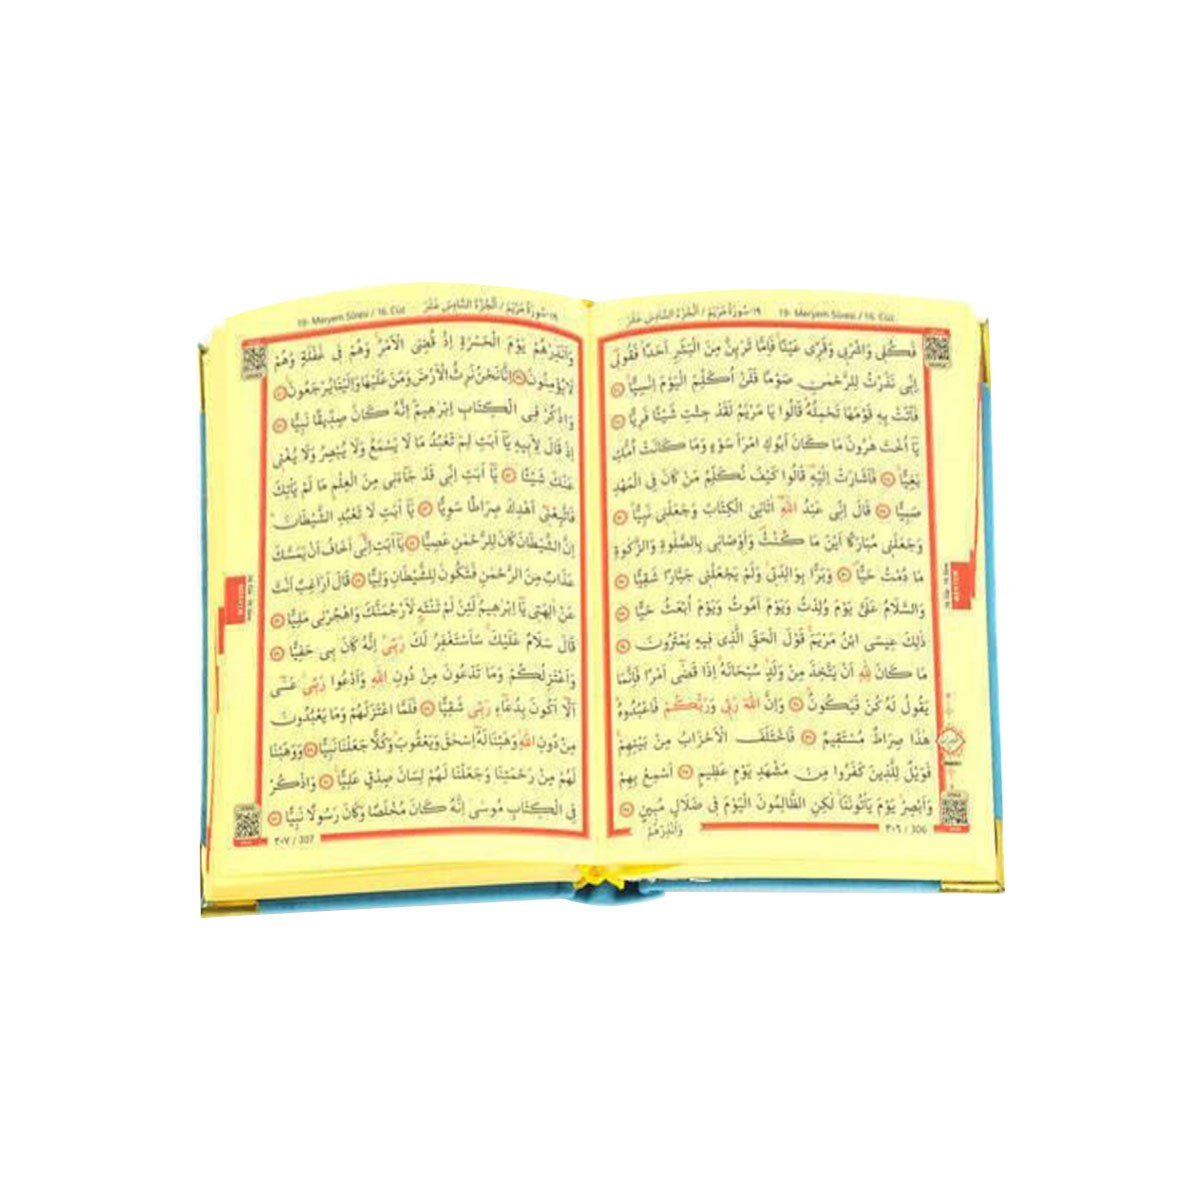 ١٩-سُورَةُ مَرْيَمَ / اَلْجُزْءُ السَّادِسَ عَشَرَ 19- Meryem Sûresi / 16. Cüz
فَكُلِي وَاشْرَبِي وَقَرِّي عَيْنًا فَاِمَّا تَرَيِنَّ مِنَ الْبَشَرِ اَحَدًا فَقُولِي
اِنِّي نَذَرْتُ لِلرَّحْمٰنِ صَوْمًا فَلَنْ اُكَلِّمَ الْيَوْمَ اِنْسِيًّا ٢٦
فَاَتَتْ بِهِ قَوْمَهَا تَحْمِلُهُ قَالُوا يَا مَرْيَمُ لَقَدْ جِئْتِ شَيْئًا فَرِيًّا ٢٧
يَا اُخْتَ هٰرُونَ مَا كَانَ اَبُوكِ امْرَاَ سَوْءٍ وَمَا كَانَتْ اُمُّكِ
بَغِيًّا ٢٨ فَاَشَارَتْ اِلَيْهِ قَالُوا كَيْفَ نُكَلِّمُ مَنْ كَانَ فِي الْمَهْدِ
صَبِيًّا ٢٩ قَالَ اِنِّي عَبْدُ اللّٰهِ اٰتَانِيَ الْكِتَابَ وَجَعَلَنِي نَبِيًّا ٣٠
وَجَعَلَنِي مُبَارَكًا اَيْنَ مَا كُنْتُ وَاَوْصَانِي بِالصَّلٰوةِ وَالزَّكٰوةِ
مَا دُمْتُ حَيًّا ٣١ وَبَرًّا بِوَالِدَتِي وَلَمْ يَجْعَلْنِي جَبَّارًا شَقِيًّا ٣٢
وَالسَّلَامُ عَلَيَّ يَوْمَ وُلِدْتُ وَيَوْمَ اَمُوتُ وَيَوْمَ اُبْعَثُ حَيًّا ٣٣
ذٰلِكَ عِيسَى ابْنُ مَرْيَمَ قَوْلَ الْحَقِّ الَّذِي فِيهِ يَمْتَرُونَ ٣٤
مَا كَانَ لِلّٰهِ اَنْ يَتَّخِذَ مِنْ وَلَدٍ سُبْحَانَهُ اِذَا قَضٰى اَمْرًا فَاِنَّمَا
يَقُولُ لَهُ كُنْ فَيَكُونُ ٣٥ وَاِنَّ اللّٰهَ رَبِّي وَرَبُّكُمْ فَاعْبُدُوهُ
هٰذَا صِرَاطٌ مُسْتَقِيمٌ ٣٦ فَاخْتَلَفَ الْاَحْزَابُ مِنْ بَيْنِهِمْ
فَوَيْلٌ لِلَّذِينَ كَفَرُوا مِنْ مَشْهَدِ يَوْمٍ عَظِيمٍ ٣٧ اَسْمِعْ بِهِمْ
وَاَبْصِرْ يَوْمَ يَأْتُونَنَا لٰكِنِ الظَّالِمُونَ الْيَوْمَ فِي ضَلَالٍ مُبِينٍ ٣٨
وَاَنْذِرْهُمْ
٣٠٦ / 306
19- Meryem Sûresi / 16. Cüz ١٩-سُورَةُ مَرْيَمَ / اَلْجُزْءُ السَّادِسَ عَشَرَ
وَاَنْذِرْهُمْ يَوْمَ الْحَسْرَةِ اِذْ قُضِيَ الْاَمْرُ وَهُمْ فِي غَفْلَةٍ وَهُمْ
لَا يُؤْمِنُونَ ٣٩ اِنَّا نَحْنُ نَرِثُ الْاَرْضَ وَمَنْ عَلَيْهَا وَاِلَيْنَا يُرْجَعُونَ ٤٠
وَاذْكُرْ فِي الْكِتَابِ اِبْرٰهِيمَ اِنَّهُ كَانَ صِدِّيقًا نَبِيًّا ٤١
اِذْ قَالَ لِاَبِيهِ يَا اَبَتِ لِمَ تَعْبُدُ مَا لَا يَسْمَعُ وَلَا يُبْصِرُ وَلَا يُغْنِي
عَنْكَ شَيْئًا ٤٢ يَا اَبَتِ اِنِّي قَدْ جَاءَنِي مِنَ الْعِلْمِ مَا لَمْ يَأْتِكَ
فَاتَّبِعْنِي اَهْدِكَ صِرَاطًا سَوِيًّا ٤٣ يَا اَبَتِ لَا تَعْبُدِ الشَّيْطَانَ
اِنَّ الشَّيْطَانَ كَانَ لِلرَّحْمٰنِ عَصِيًّا ٤٤ يَا اَبَتِ اِنِّي اَخَافُ اَنْ يَمَسَّكَ
عَذَابٌ مِنَ الرَّحْمٰنِ فَتَكُونَ لِلشَّيْطَانِ وَلِيًّا ٤٥ قَالَ اَرَاغِبٌ اَنْتَ
عَنْ اٰلِهَتِي يَا اِبْرٰهِيمُ لَئِنْ لَمْ تَنْتَهِ لَاَرْجُمَنَّكَ وَاهْجُرْنِي مَلِيًّا ٤٦
قَالَ سَلَامٌ عَلَيْكَ سَاَسْتَغْفِرُ لَكَ رَبِّي اِنَّهُ كَانَ بِي حَفِيًّا ٤٧
وَاَعْتَزِلُكُمْ وَمَا تَدْعُونَ مِنْ دُونِ اللّٰهِ وَاَدْعُوا رَبِّي عَسٰى
اَلَّا اَكُونَ بِدُعَاءِ رَبِّي شَقِيًّا ٤٨ فَلَمَّا اعْتَزَلَهُمْ وَمَا يَعْبُدُونَ
مِنْ دُونِ اللّٰهِ وَهَبْنَا لَهُ اِسْحٰقَ وَيَعْقُوبَ وَكُلًّا جَعَلْنَا نَبِيًّا ٤٩ وَوَهَبْنَا
لَهُمْ مِنْ رَحْمَتِنَا وَجَعَلْنَا لَهُمْ لِسَانَ صِدْقٍ عَلِيًّا ٥٠ وَاذْكُرْ
فِي الْكِتَابِ مُوسٰى اِنَّهُ كَانَ مُخْلَصًا وَكَانَ رَسُولًا نَبِيًّا ٥١
٣٠٧ / 307